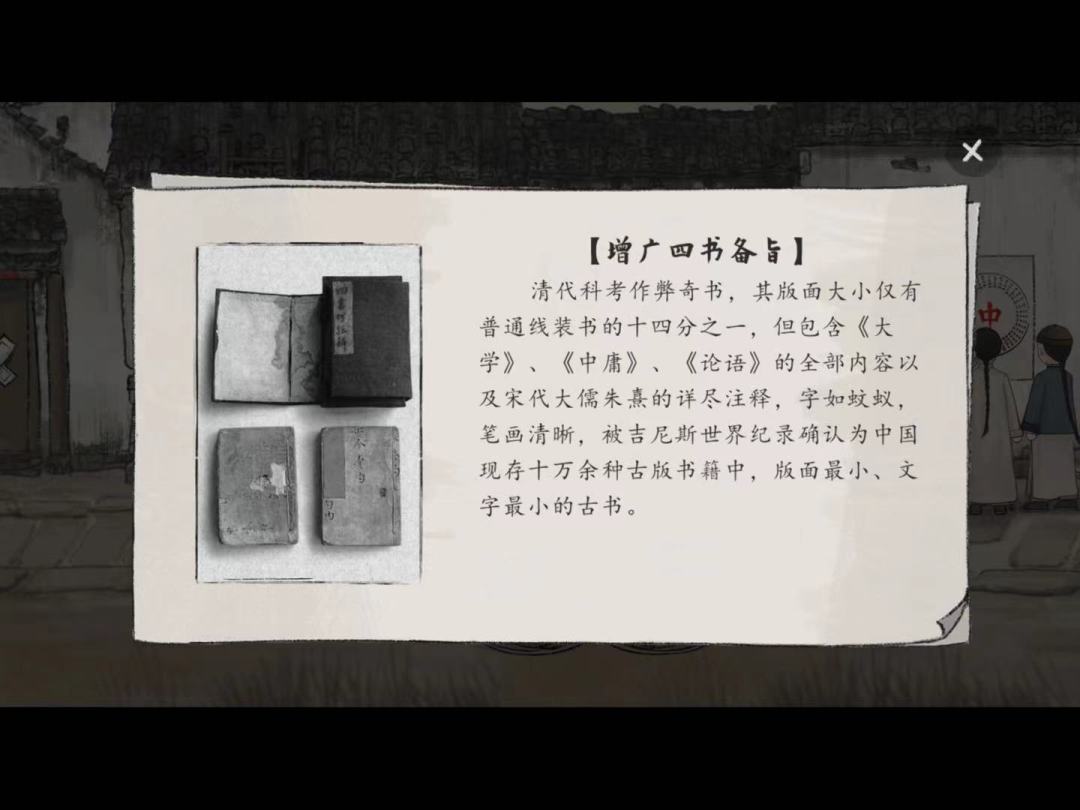 【增广四书备旨】
清代科考作弊奇书，其版面大小仅有
普通线装书的十四分之一，但包含《大
学》、《中庸》、《论语》的全部内容以
及宋代大儒朱熹的详尽注释，字如蚊蚁，
笔画清晰，被吉尼斯世界纪录确认为中国
现存十万余种古版书籍中，版面最小、文
字最小的古书。
中